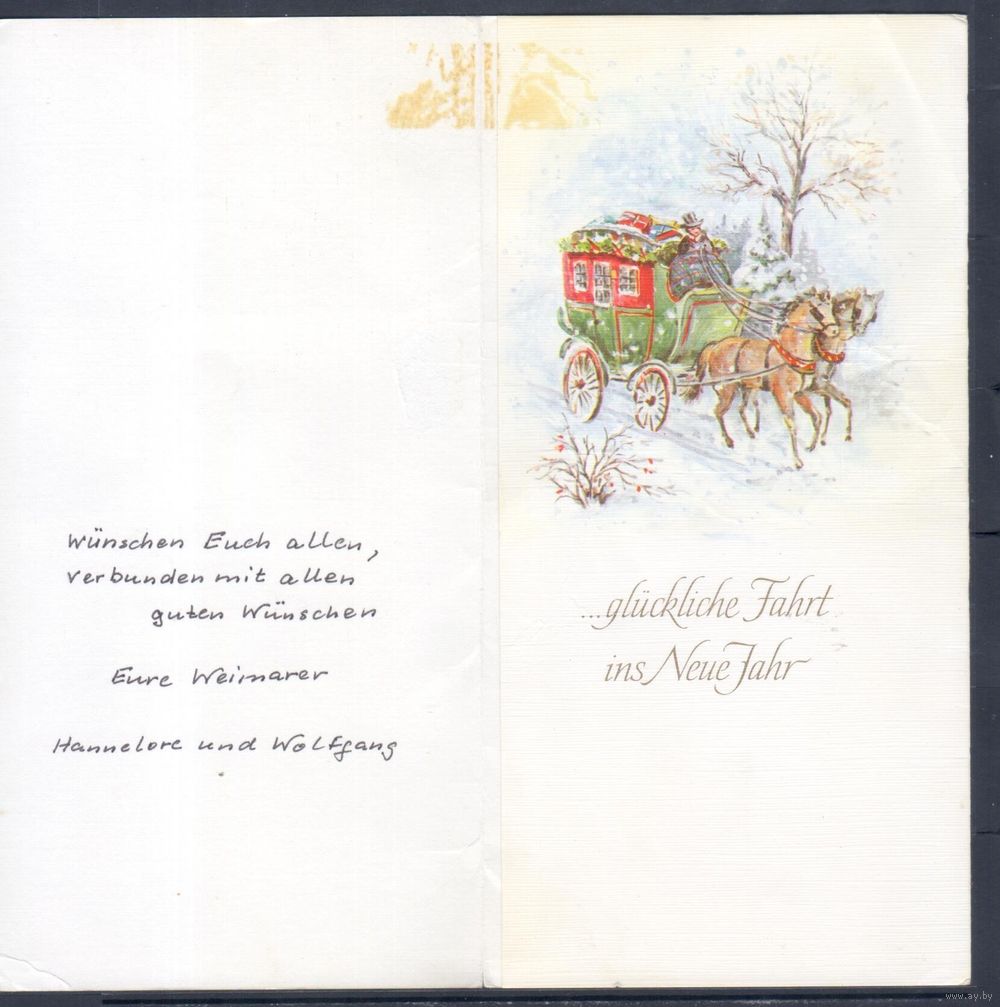 Wünschen Euch allen,
verbunden mit allen
guten Wünschen
Eure Weimarer
Hannelore und Wolfgang
...glückliche Fahrt
ins Neue Jahr
www.ay.by